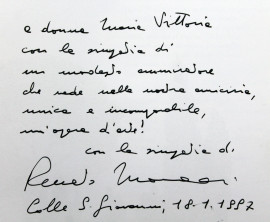 a donna Maria Vittoria
con la simpatia di
un modesto ammiratore
che vede nella nostra amicizia,
unica e incomparabile,
un'opera d'arte!
con la simpatia di
Colle S. Giovanni, 18.1.1997